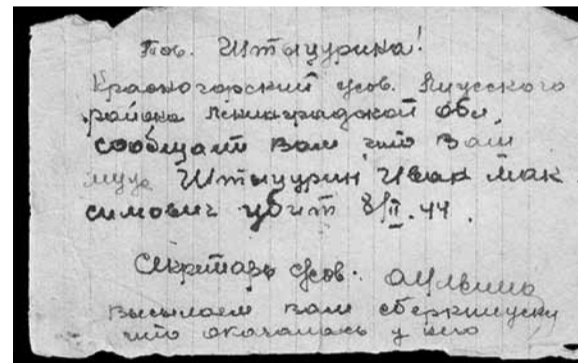 Тов. Штыцурина!
Красногорский с/сов. Лужского
района Ленинградской обл.
сообщает вам что ваш
муж Штыцурин Иван Мак
симович убит 8/II.44.
Секретарь с/сов.
Высылаем вам сберкнижку
что оказалась у него